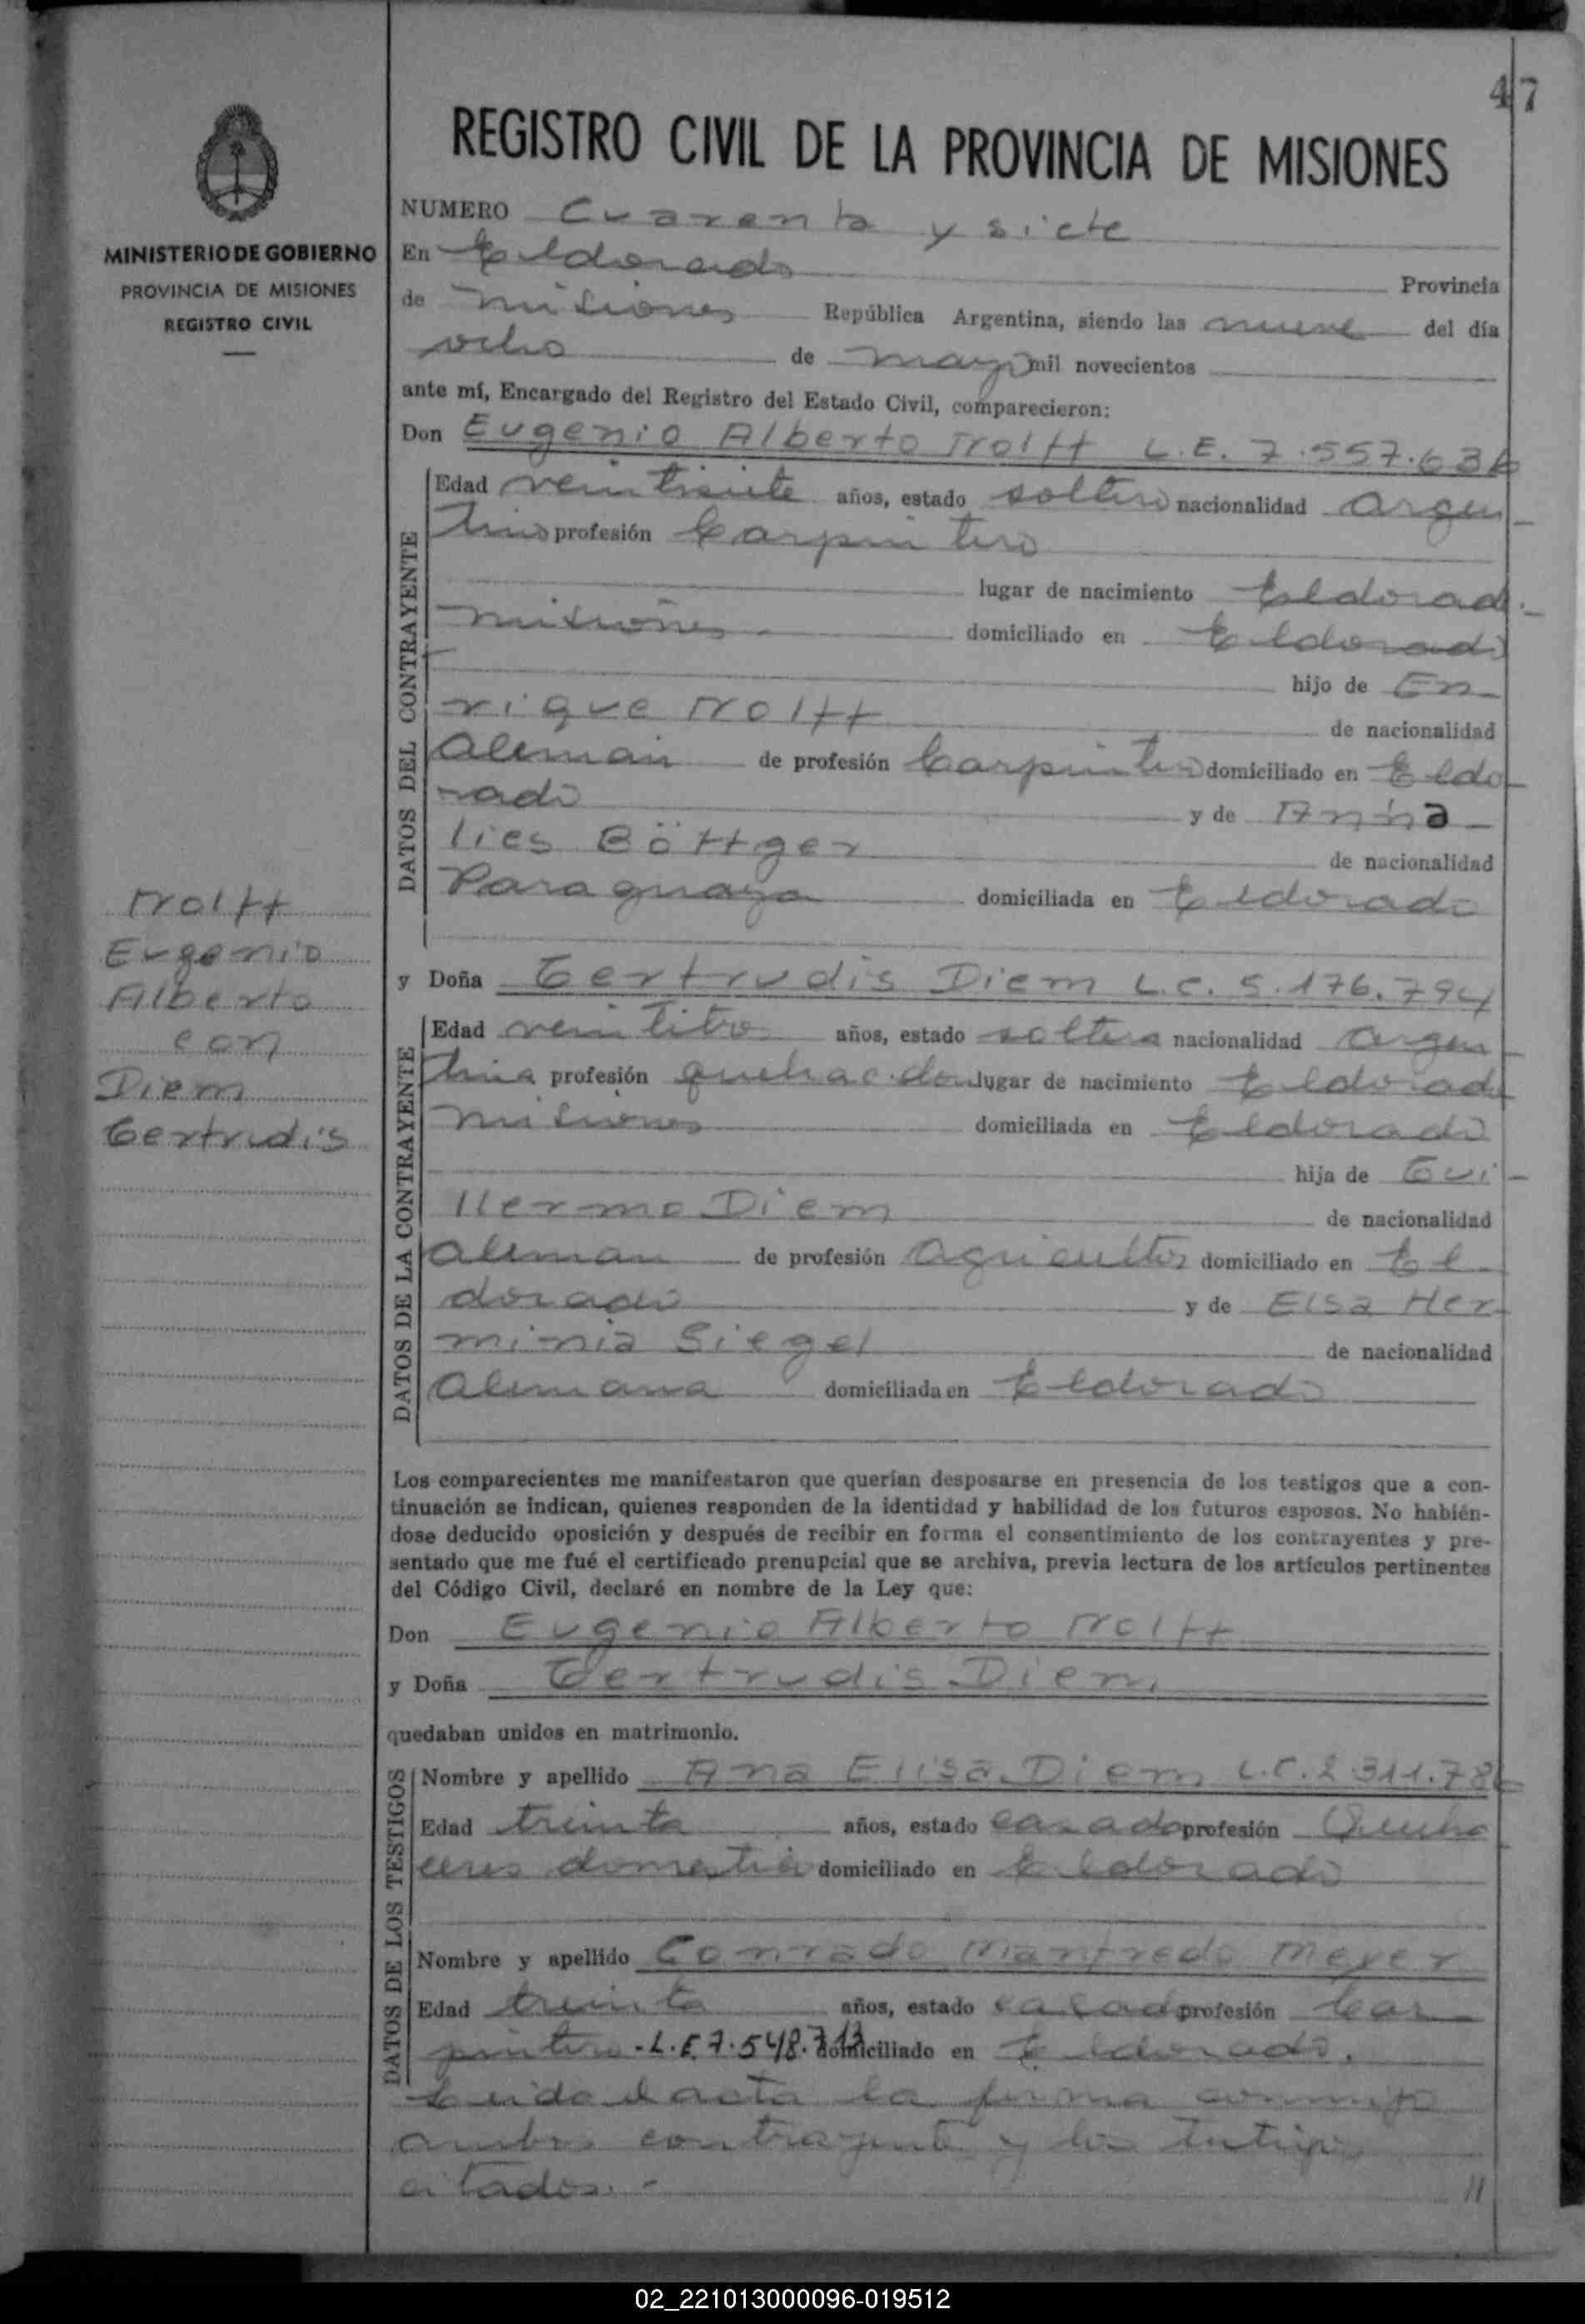 47
REGISTRO CIVIL DE LA PROVINCIA DE MISIONES
MINISTERIO DE GOBIERNO
PROVINCIA DE MISIONES
REGISTRO CIVIL
NUMERO Cuarenta y siete
En Eldorado Provincia
de Misiones República Argentina, siendo las nueve del día
ocho de mayo mil novecientos
ante mí, Encargado del Registro del Estado Civil, comparecieron:
Don Eugenio Alberto L.E. 7.557.636
DATOS DEL CONTRAYENTE
Edad veintisiete años, estado soltero nacionalidad argen-
tino profesión Carpintero
lugar de nacimiento Eldorado.-
Misiones domiciliado en Eldorado
hijo de En-
rique
de nacionalidad
Aleman de profesión Carpintero domiciliado en Eldo-
rado y de Anna
lies Böttger de nacionalidad
Paraguaya domiciliada en Eldorado
Eugenio
Alberto
con
Diem
Gertrudis
y Doña Gertrudis Diem L.C. 5.176.794
DATOS DE LA CONTRAYENTE
Edad años, estado soltera nacionalidad argen-
tina profesión quehac. dom. lugar de nacimiento Eldorado
Misiones domiciliada en Eldorado
hija de Gui-
llermo Diem de nacionalidad
Aleman de profesión Agricultor domiciliado en El-
dorado y de Elsa Her-
minia Siegel de nacionalidad
Alemana domiciliada en Eldorado
Los comparecientes me manifestaron que querían desposarse en presencia de los testigos que a con-
tinuación se indican, quienes responden de la identidad y habilidad de los futuros esposos. No habién-
dose deducido oposición y después de recibir en forma el consentimiento de los contrayentes y pre-
sentado que me fué el certificado prenupcial que se archiva, previa lectura de los artículos pertinentes
del Código Civil, declaré en nombre de la Ley que:
Don Eugenio Alberto
y Doña Gertrudis Diem
quedaban unidos en matrimonio.
DATOS DE LOS TESTIGOS
Nombre y apellido Ana Elisa Diem L.C. 2.311.786
Edad treinta años, estado casada profesión Queha-
ceres domesticos domiciliado en Eldorado
Nombre y apellido Conrado Manfredo Meyer
Edad treinta años, estado casado profesión Car-
pintero - L.E. 7.548.713 domiciliado en Eldorado.
Leida el acta la firma conmigo
ambos contrayentes y los testigos
citados. -
02_221013000096-019512